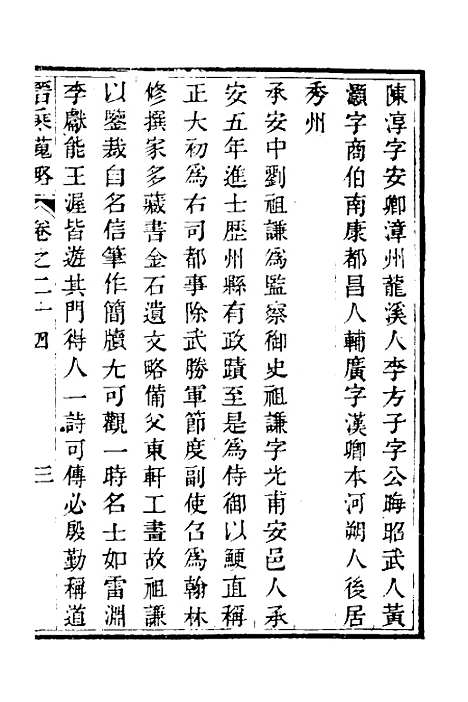 陳淳字安卿漳州龍溪人李方子字公晦昭武人黃
灝字商伯南康都昌人輔廣字漢卿本河朔人後居
秀州
承安中劉祖謙為監察御史祖謙字光甫安邑人承
安五年進士歷州縣有政蹟至是為侍御以鯁直稱
正大初為右司都事除武勝軍節度副使召為翰林
修撰家多藏書金石遺文略備父東軒工畫故祖謙
以鑒裁自名信筆作簡牘尤可觀一時名士如雷淵
李獻能王渥皆遊其門得人一詩可傳必殷勤稱道
晉乘蒐略 卷之二十四 三